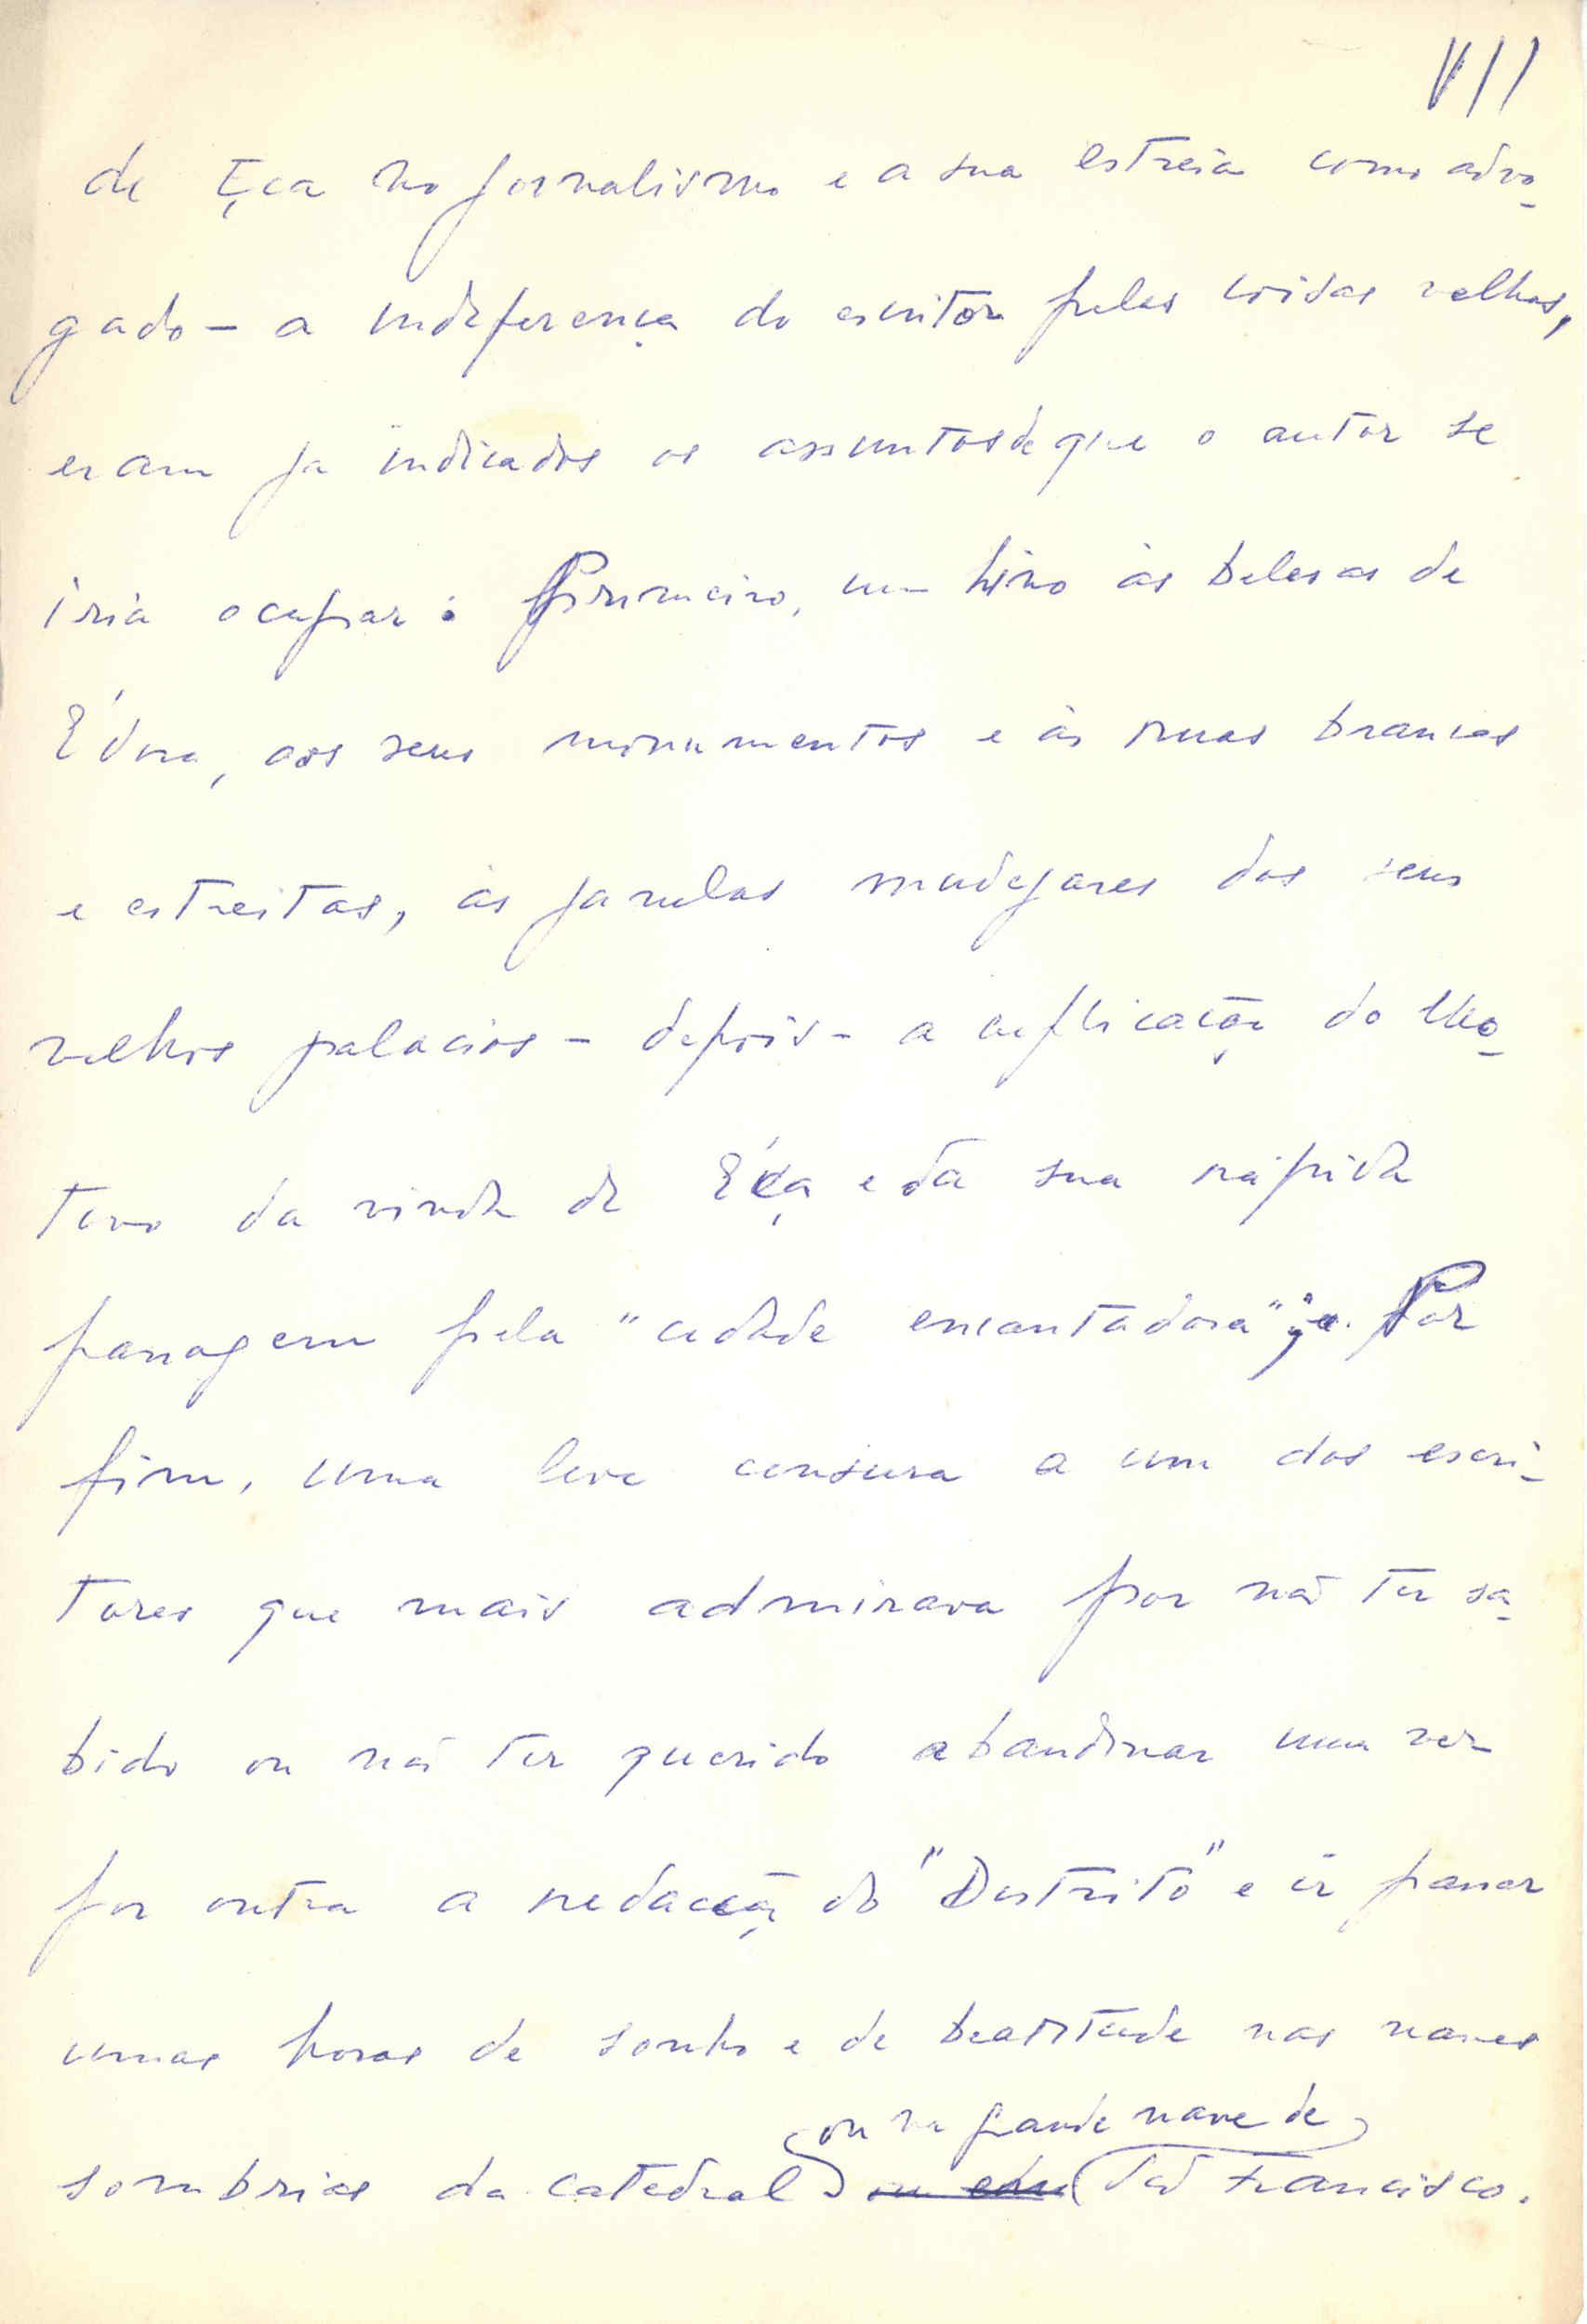 VII
de Eça no jornalismo e a sua estreia como advo-
gado - a indiferença do escritor pelas coisas velhas,
eram já indicados os assuntos de que o autor se
iria ocupar: Primeiro, um hino às belesas de
Évora, aos seus monumentos e às ruas brancas
e estreitas, às janelas mudejares dos seus
velhos palacios - depois - a explicação do mo-
tivo da vinda de Eça e da sua rápida
passagem pela "cidade encantadora"; Por
fim, uma leve censura a um dos escri-
tores que mais admirava por não ter sa-
bido ou não ter querido abandonar uma vez
por outra a redacção do "Distrito" e ir passar
umas horas de sonho e de beatitude nas naves
ou na grande nave de
sombrias da catedral São Francisco.